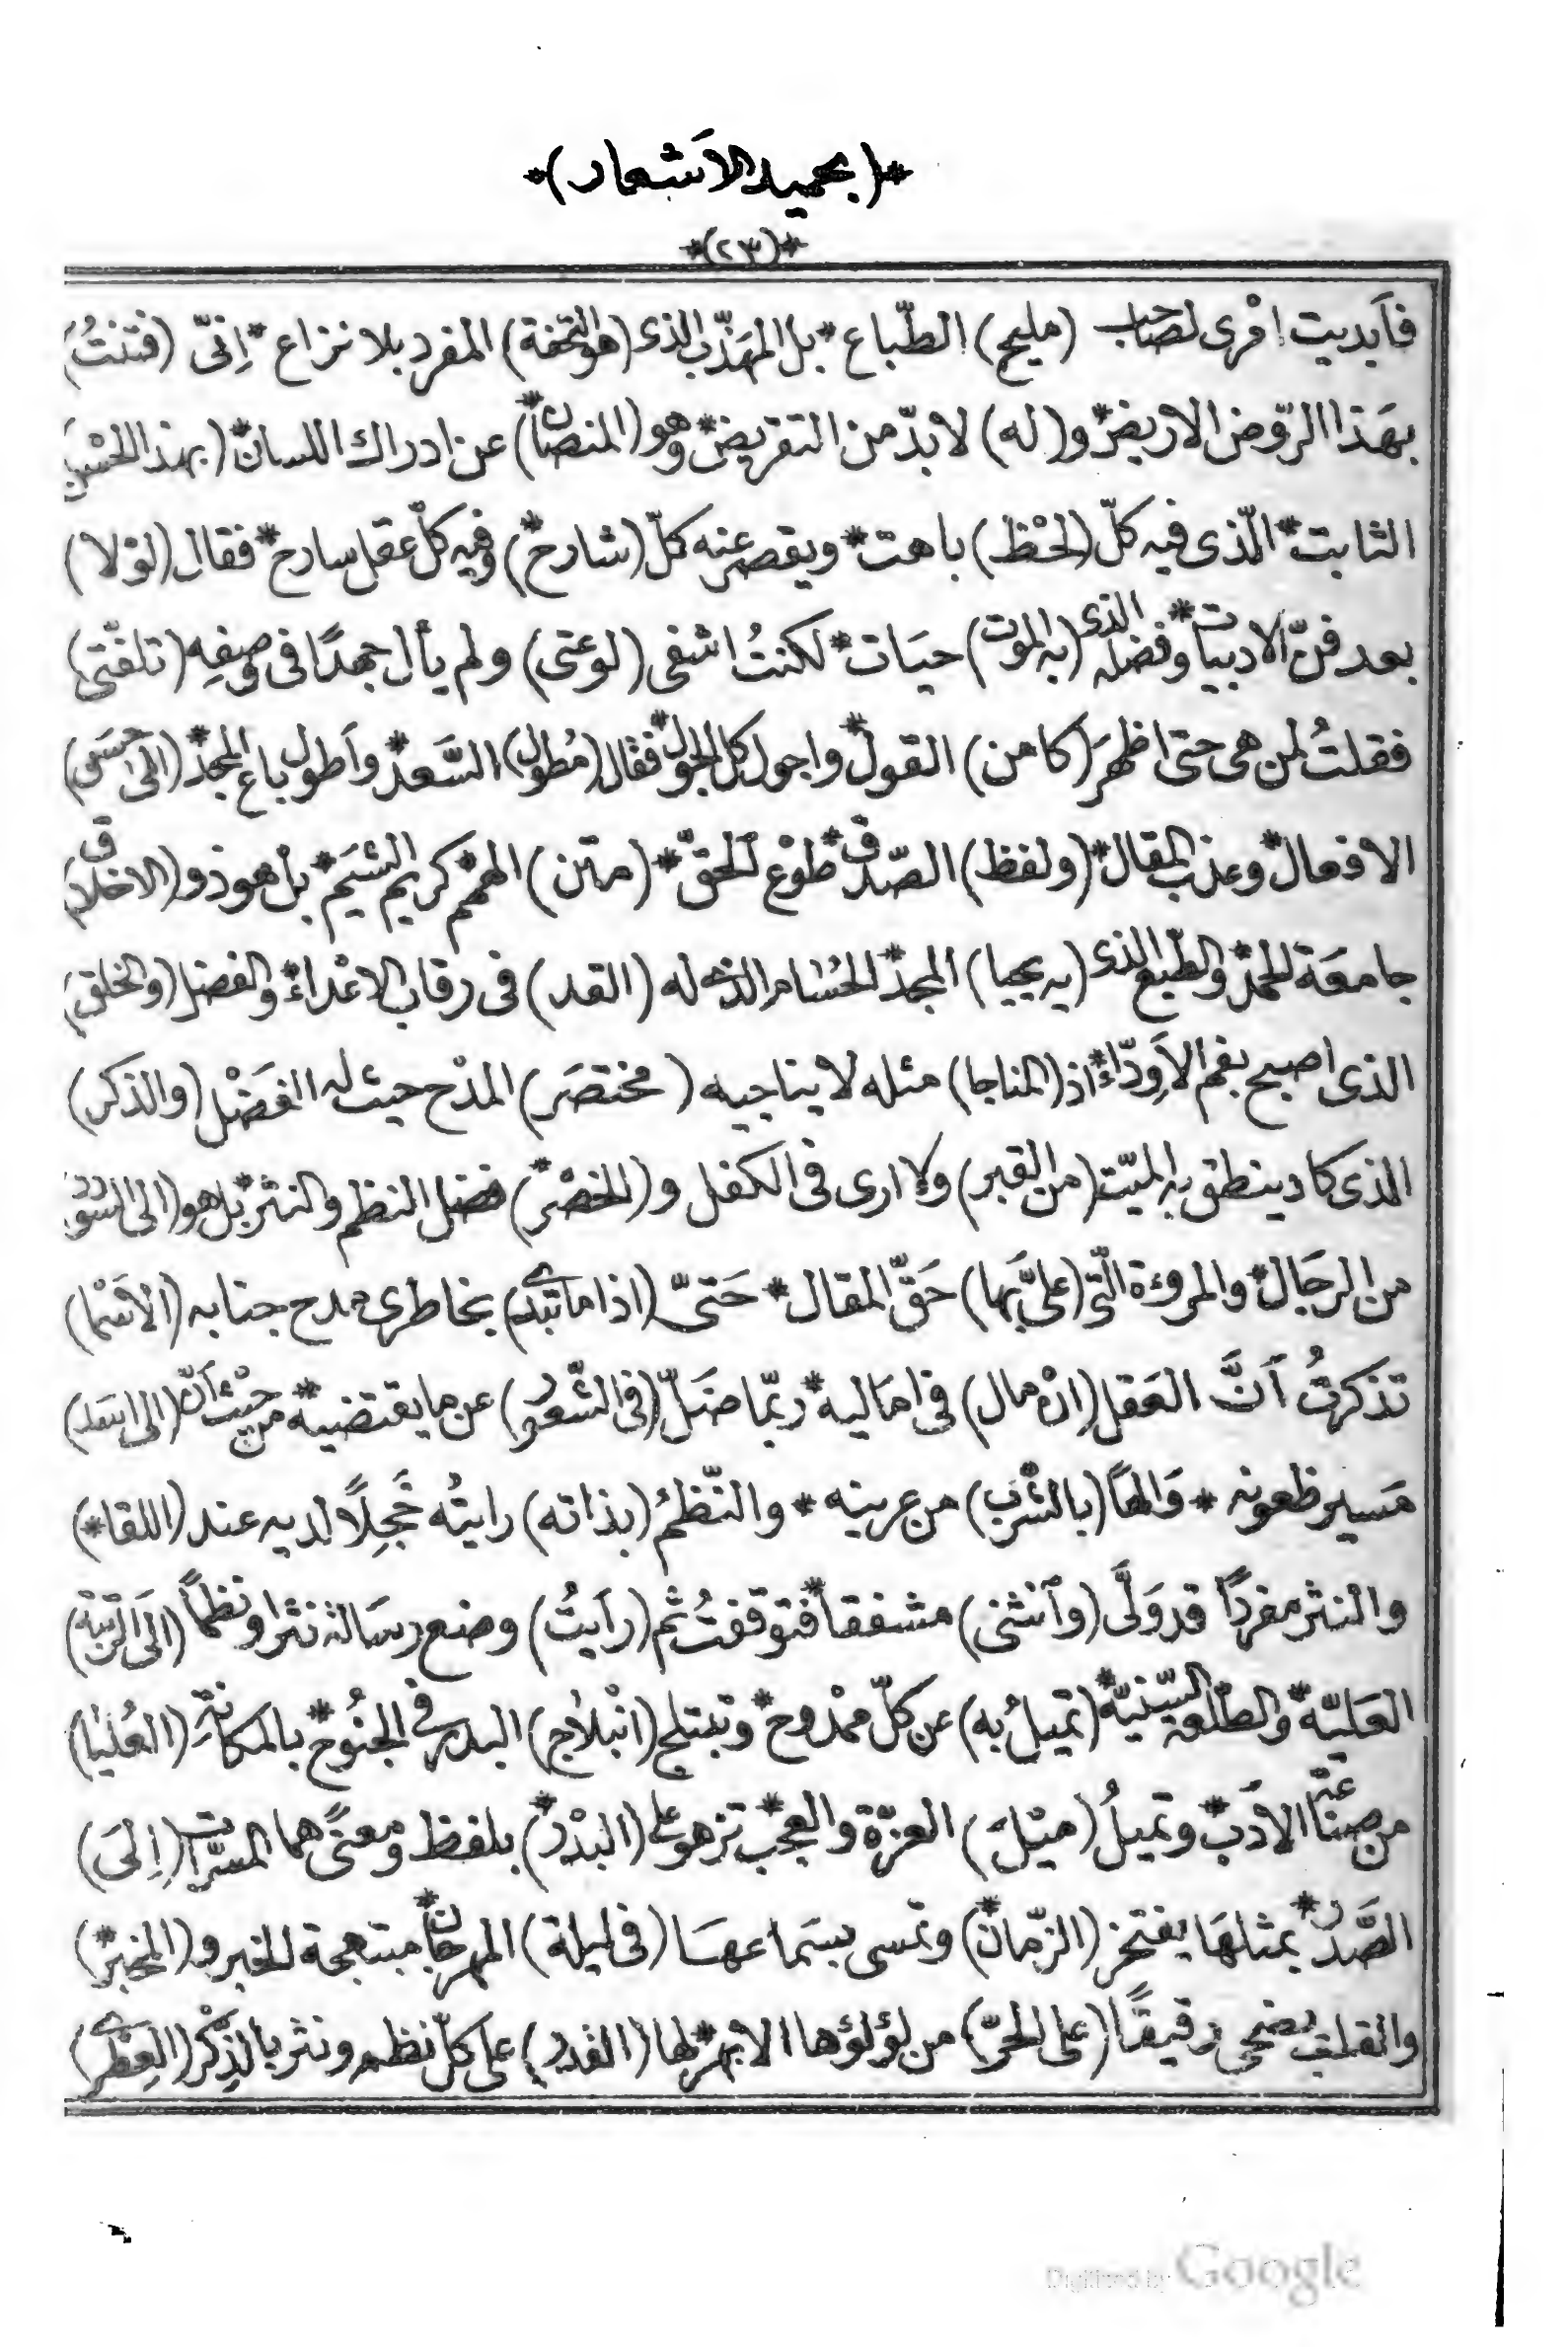 *(بحميد الاَشعار)*
*(٢٣)*
فاَبديت امْرى لصاحب (مليح) الطّباع * بل المهذّب الذى (هو التحفة) المفرد بلا نزاع * اِنّى (فتنتُ)
بهَذا الرّوض الاريض * و(له) لا بدّ من التقريض * وهو (المنصان *) عن ادراك اللسان * (بهذا الحسْن)
الثابت * الّذى فيه كلّ (لحْظ) باهت * ويقصر عنه كلّ (شارح *) وفيه كلّ عقل سارح * فقال (لوْلا)
بعد فنّ الادبيات * وفضله الذى (به الموت) حيَات * لكنتُ اشفى (لوعتى) ولم يأل جهدًا فى وصفِه (تلفّتى)
فقلتُ لمن هى حتى اظهرَ (كامن) القول * واجول كل الجول * فقال (مُطول) السَّعد * واَطول باع المجد * (الى حسَن)
الافعال * وعذب المقال * (ولفظ) الصّدق * طوْع الحقّ * (متن) الهمم * كريم الشيَم * بل هو ذو (الاخلاق)
جامعَة الحمد * والطبع الذى (به يحيا) المجد * الحُسَام الذى له (القد) فى رقاب الاعْداء * والفضل (والخلق)
الذى اصبح بفم الاَوِدّاء * اذ (المناجا) مثله لا يناجيه (مختصَر) المدْح حيث له الفَضْل (والذكر)
الذى كاد ينطق به الميّت (من القبر) ولا ارى فى الكفل و(الخصْر *) فضل النظم والنثر * بل هو (الى السود)
من الرجَال * والمروءة الّتى (علىَّ بها) حَقَّ المقال * حَتىّ (اذا ما تبدى) بخاطرى مدح جنابه (الاَسْما)
تذكرتُ اَنَّ العَقل (اِنْ مال) فى امَاليه * ربّما ضَلّ (فى الشّعور) عن ما يقتضيه * من حيْث اَنّ (الى اسَد)
مَسير ظعونه * وَالهاً (بالشْرب) من عرينه * والنّظمُ (بذاته) رايتُه خَجِلاً لديه عند (اللقا *)
والنثر مفردًا قد وَلَّى (واَنثنى) مشفقا * فتوقفتُ ثم (راَيتُ) وضع رسَالة نثرا ونظمًا (الَى الرتبَة)
العَليّه * والطلعة السَّنيّه * (تميلُ به) عن كلّ ممْدوح * وتبتلج (انْبلاج) البدر فى الجنُوح * بالمكانَة (العُليَا)
من صنَاعَة الاَدَب * وتميلُ (ميْلَ) العزة والعجب * تزهو على (البدْر *) بلفظ ومعنًى هما المسَرّات (اِلىَ)
الصَّدر * بمثلهَا يفتخر (الزّمان *) وتمسى بسَماعهَا (فى ليلة) المهرجان * مبتهجة للخبر و(المخبر *)
والقلب يضحى رقيقًا (على الحرّ) من لؤلؤها الابْهر * لها (القدر) على كلّ نظم ونثر بالذِكْر (العِطرى)
Digitized by Google